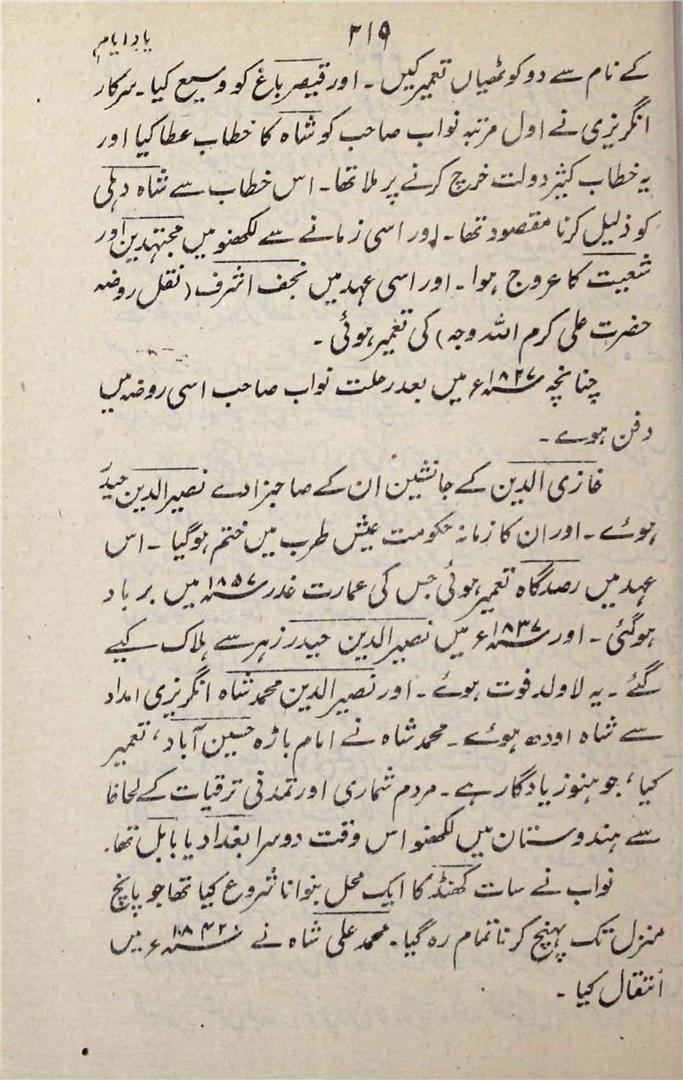 ۲۱۹
یادِ ایام
کے نام سے دو کوٹھیاں تعمیر کیں ۔ اور قیصر باغ کو وسیع کیا ۔ سرکار
انگریزی نے اول مرتبہ نواب صاحب کو شاہ کا خطاب عطا کیا اور
یہ خطاب کثیر دولت خرچ کرنے پر ملا تھا ۔ اس خطاب سے شاہ دہلی
کو ذلیل کرنا مقصود تھا ۔ اور اسی زمانے سے لکھنو میں مجتہدین اور
شعیت کا عروج ہوا ۔ اور اسی عہد میں نجف اشرف (نقل روضہ
حضرت علی کرم اللہ وجہ) کی تعمیر ہوئی ۔
چنانچہ ۱۸۲۷ء میں بعد رحلت نواب صاحب اسی روضہ میں
دفن ہوے ۔
غازی الدین کے جانشین ان کے صاحبزادے نصیر الدین حیدر
ہوئے ۔ اور ان کا زمانہ حکومت عیش طرب میں ختم ہو گیا ۔ اس
عہد میں رصد گاہ تعمیر ہوئی جس کی عمارت غدر ۱۸۵۷ء میں برباد
ہو گئی ۔ اور ۱۸۳۷ء میں نصیر الدین حیدر زہر سے ہلاک کیے
گئے ۔ یہ لاولد فوت ہوئے ۔ اور نصیر الدین محمد شاہ انگریزی امداد
سے شاہ اودھ ہوئے ۔ محمد شاہ نے امام باڑہ حسین آباد ، تعمیر
کیا ، جو ہنوز یادگار ہے ۔ مردم شماری اور تمدنی ترقیات کے لحاظ
سے ہندوستان میں لکھنو اس وقت دوسرا بغداد یا بابل تھا ۔
نواب نے سات کھنڈ کا ایک محل بنوانا شروع کیا تھا جو پانچ
منزل تک پہنچ کر ناتمام رہ گیا ۔ محمد علی شاہ نے ۱۸۴۲ء میں
انتقال کیا ۔